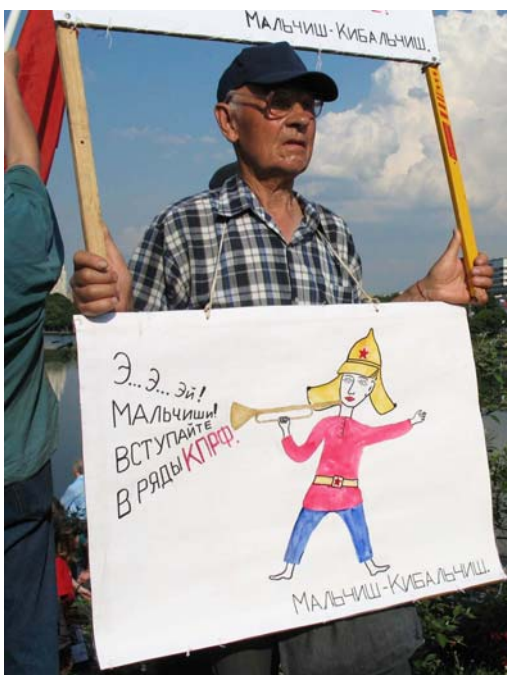 Мальчиш-Кибальчиш.
Э... Э... Эй!
Мальчиши!
Вступайте
в ряды КПРФ.
Мальчиш-Кибальчиш.